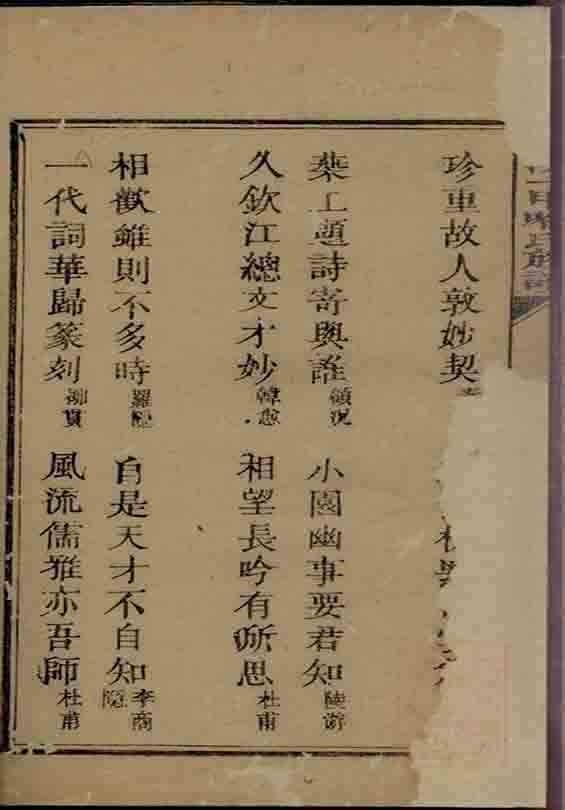 珍重故人敦妙契
葉上題詩寄與誰 顧況 小園幽事要君知 陸游
久欽江總文才妙 韓愈 相望長吟有所思 杜甫
相歡雖則不多時 羅隱 自是天才不自知 李商隱
一代詞華歸篆刻 柳貫 風流儒雅亦吾師 杜甫